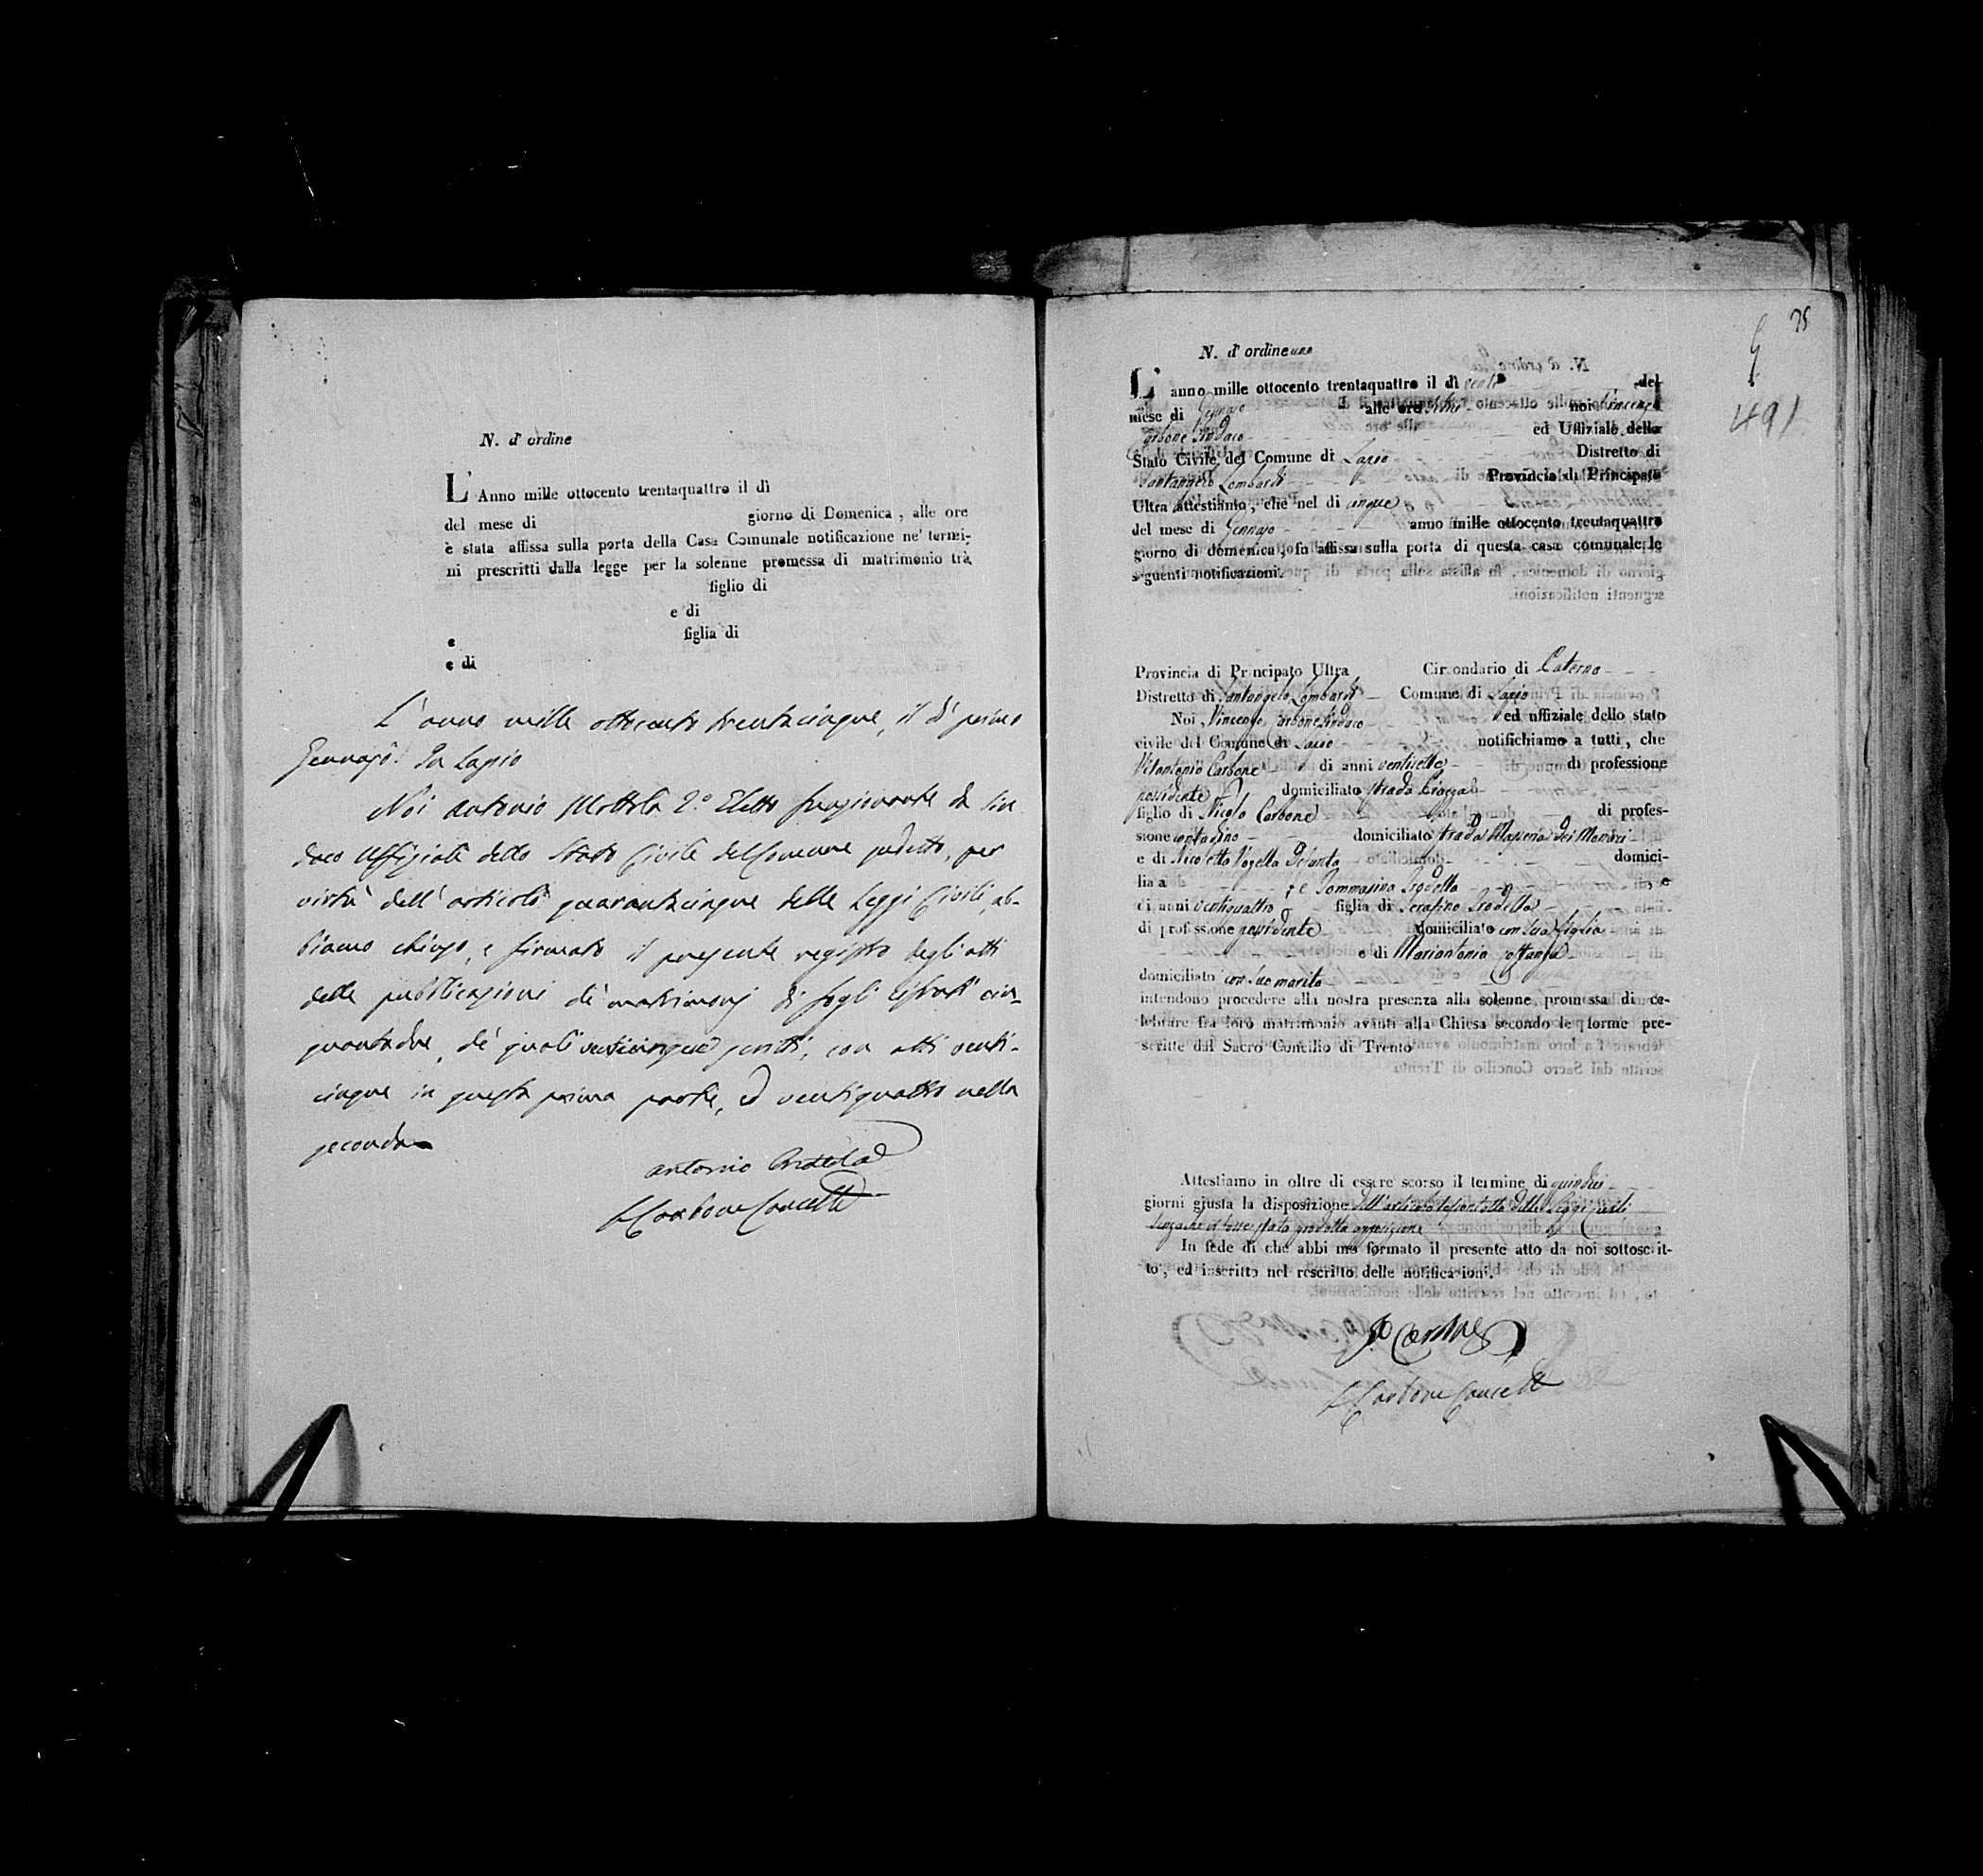 N. d' ordine
L' Anno mille ottocento trentaquattro il dì
del mese di giorno di Domenica, alle ore
è stata affissa sulla porta della Casa Comunale notificazione ne' termi-
ni prescritti dalla legge per la solenne promessa di matrimonio trà
figlio di
e di
e figlia di
e di
L'anno mille ottocento trentacinque, il dì primo
Gennajo. In Lapio
Noi Antonio Mottola 2.º Eletto funzionante da Sin
daco Uffiziale dello Stato Civile del Comune suddetto, per
virtù dell'articolo quarantacinque delle Leggi Civili, ab-
biamo chiuso, e firmato il presente registro degli atti
delle pubblicazioni di matrimonj di fogli cifrati cin-
quantadue, de' quali venticinque scritti, con atti venti-
cinque in questa prima parte, ed ventiquattro nella
seconda
Antonio
Carbone Cancell
35
491
N. d' ordine uno
L' anno mille ottocento trentaquattro il dì venti del
mese di Gennajo alle ore noi Vincenzo
Carbone Sindaco ed Uffiziale dello
Stato Civile del Comune di Lapio Distretto di
Santangelo Lombardi Provincia di Principato
Ultra attestiamo, che nel dì cinque
del mese di Gennajo anno mille ottocento trentaquattro
giorno di domenica, fu affissa sulla porta di questa casa comunale le
seguenti notificazioni.
Provincia di Principato Ultra Circondario di Paterno
Distretto di Santangelo Lombardi Comune di Lapio
Noi, Vincenzo Carbone Sindaco ed uffiziale dello stato
civile del Comune di Lapio notifichiamo a tutti, che
Vitantonio Carbone di anni ventisette di professione
possidente domiciliato strada Piazza
figlio di Nicola Carbone di profes-
sione contadino domiciliato strada Masseria dei
e di Nicoletta defunta domici-
liata ; e Tommasina e
di anni ventiquattro figlia di Serafino
di professione possidente domiciliato con sua figlia
e di Mariantonia
domiciliato con suo marito
intendono procedere alla nostra presenza alla solenne promessa di ce-
lebrare fra loro matrimonio avanti alla Chiesa secondo le forme pre-
scritte dal Sacro Concilio di Trento
Attestiamo in oltre di essere scorso il termine di quindici
giorni giusta la disposizione dell'articolo sessantotto delle Leggi Civili
senza che vi fosse stata prodotta opposizione
In fede di che abbiamo formato il presente atto da noi sottoscrit-
to, ed inscritto nel rescritto delle notificazioni.
Carbone
Carbone Cancell